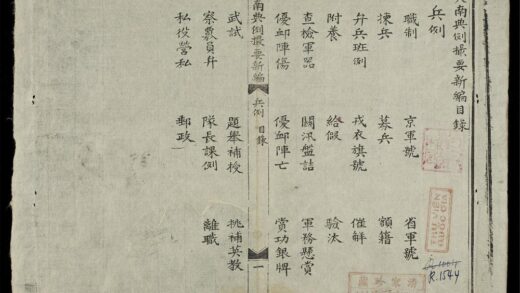 南典例撮要新編目錄
兵例
職制 京軍號 省軍號
揀兵 募兵 額籍
弁兵班例 戎衣旗號 催觧
附養 給假 驗汰
查檢軍器 關汛盤詰 軍務懸賞
優卹陣傷 優卹陣亡 賞功銀牌
南典例撮要新編 兵例 目錄 一
武試 題舉補授 挑補英教
察覈員弁 隊長課例 離職
私役營私 郵政
THƯ VIỆN
QUỐC GIA
R.1544